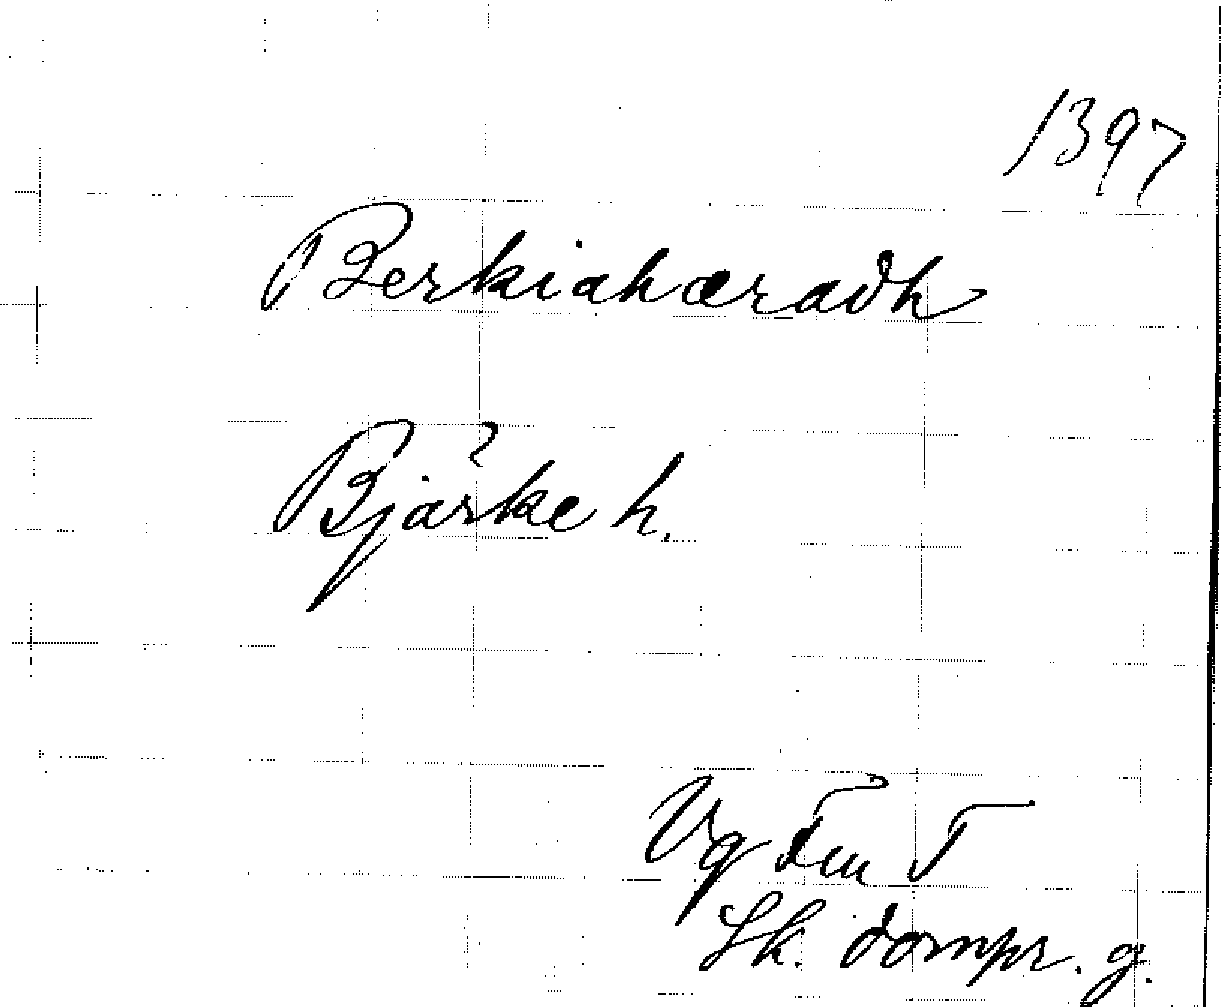 1397
Berkiahæradh
Bjärke h.
Vg Fu T
Sk. dompr. g.